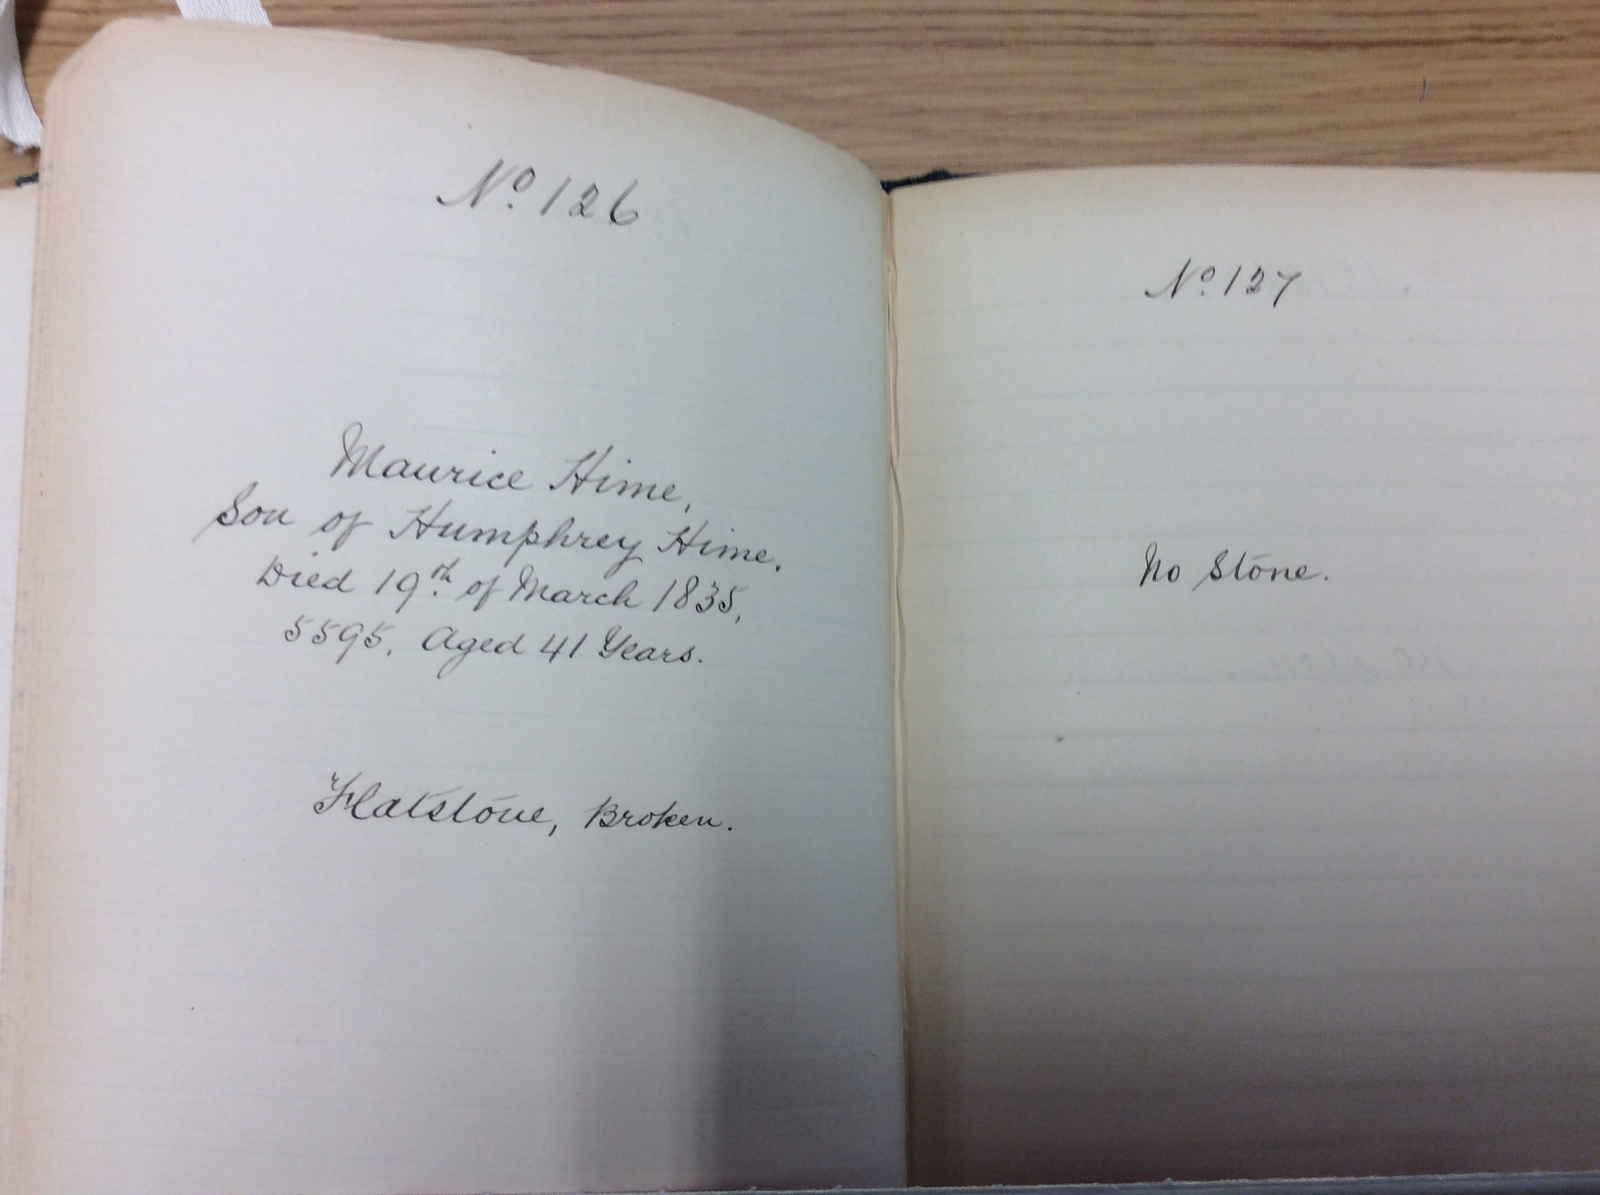 No. 126
Maurice Hime,
Son of Humphrey Hime.
Died 19th of March 1835,
5595. Aged 41 Years.
Flatstone, Broken.
No. 127
No Stone.